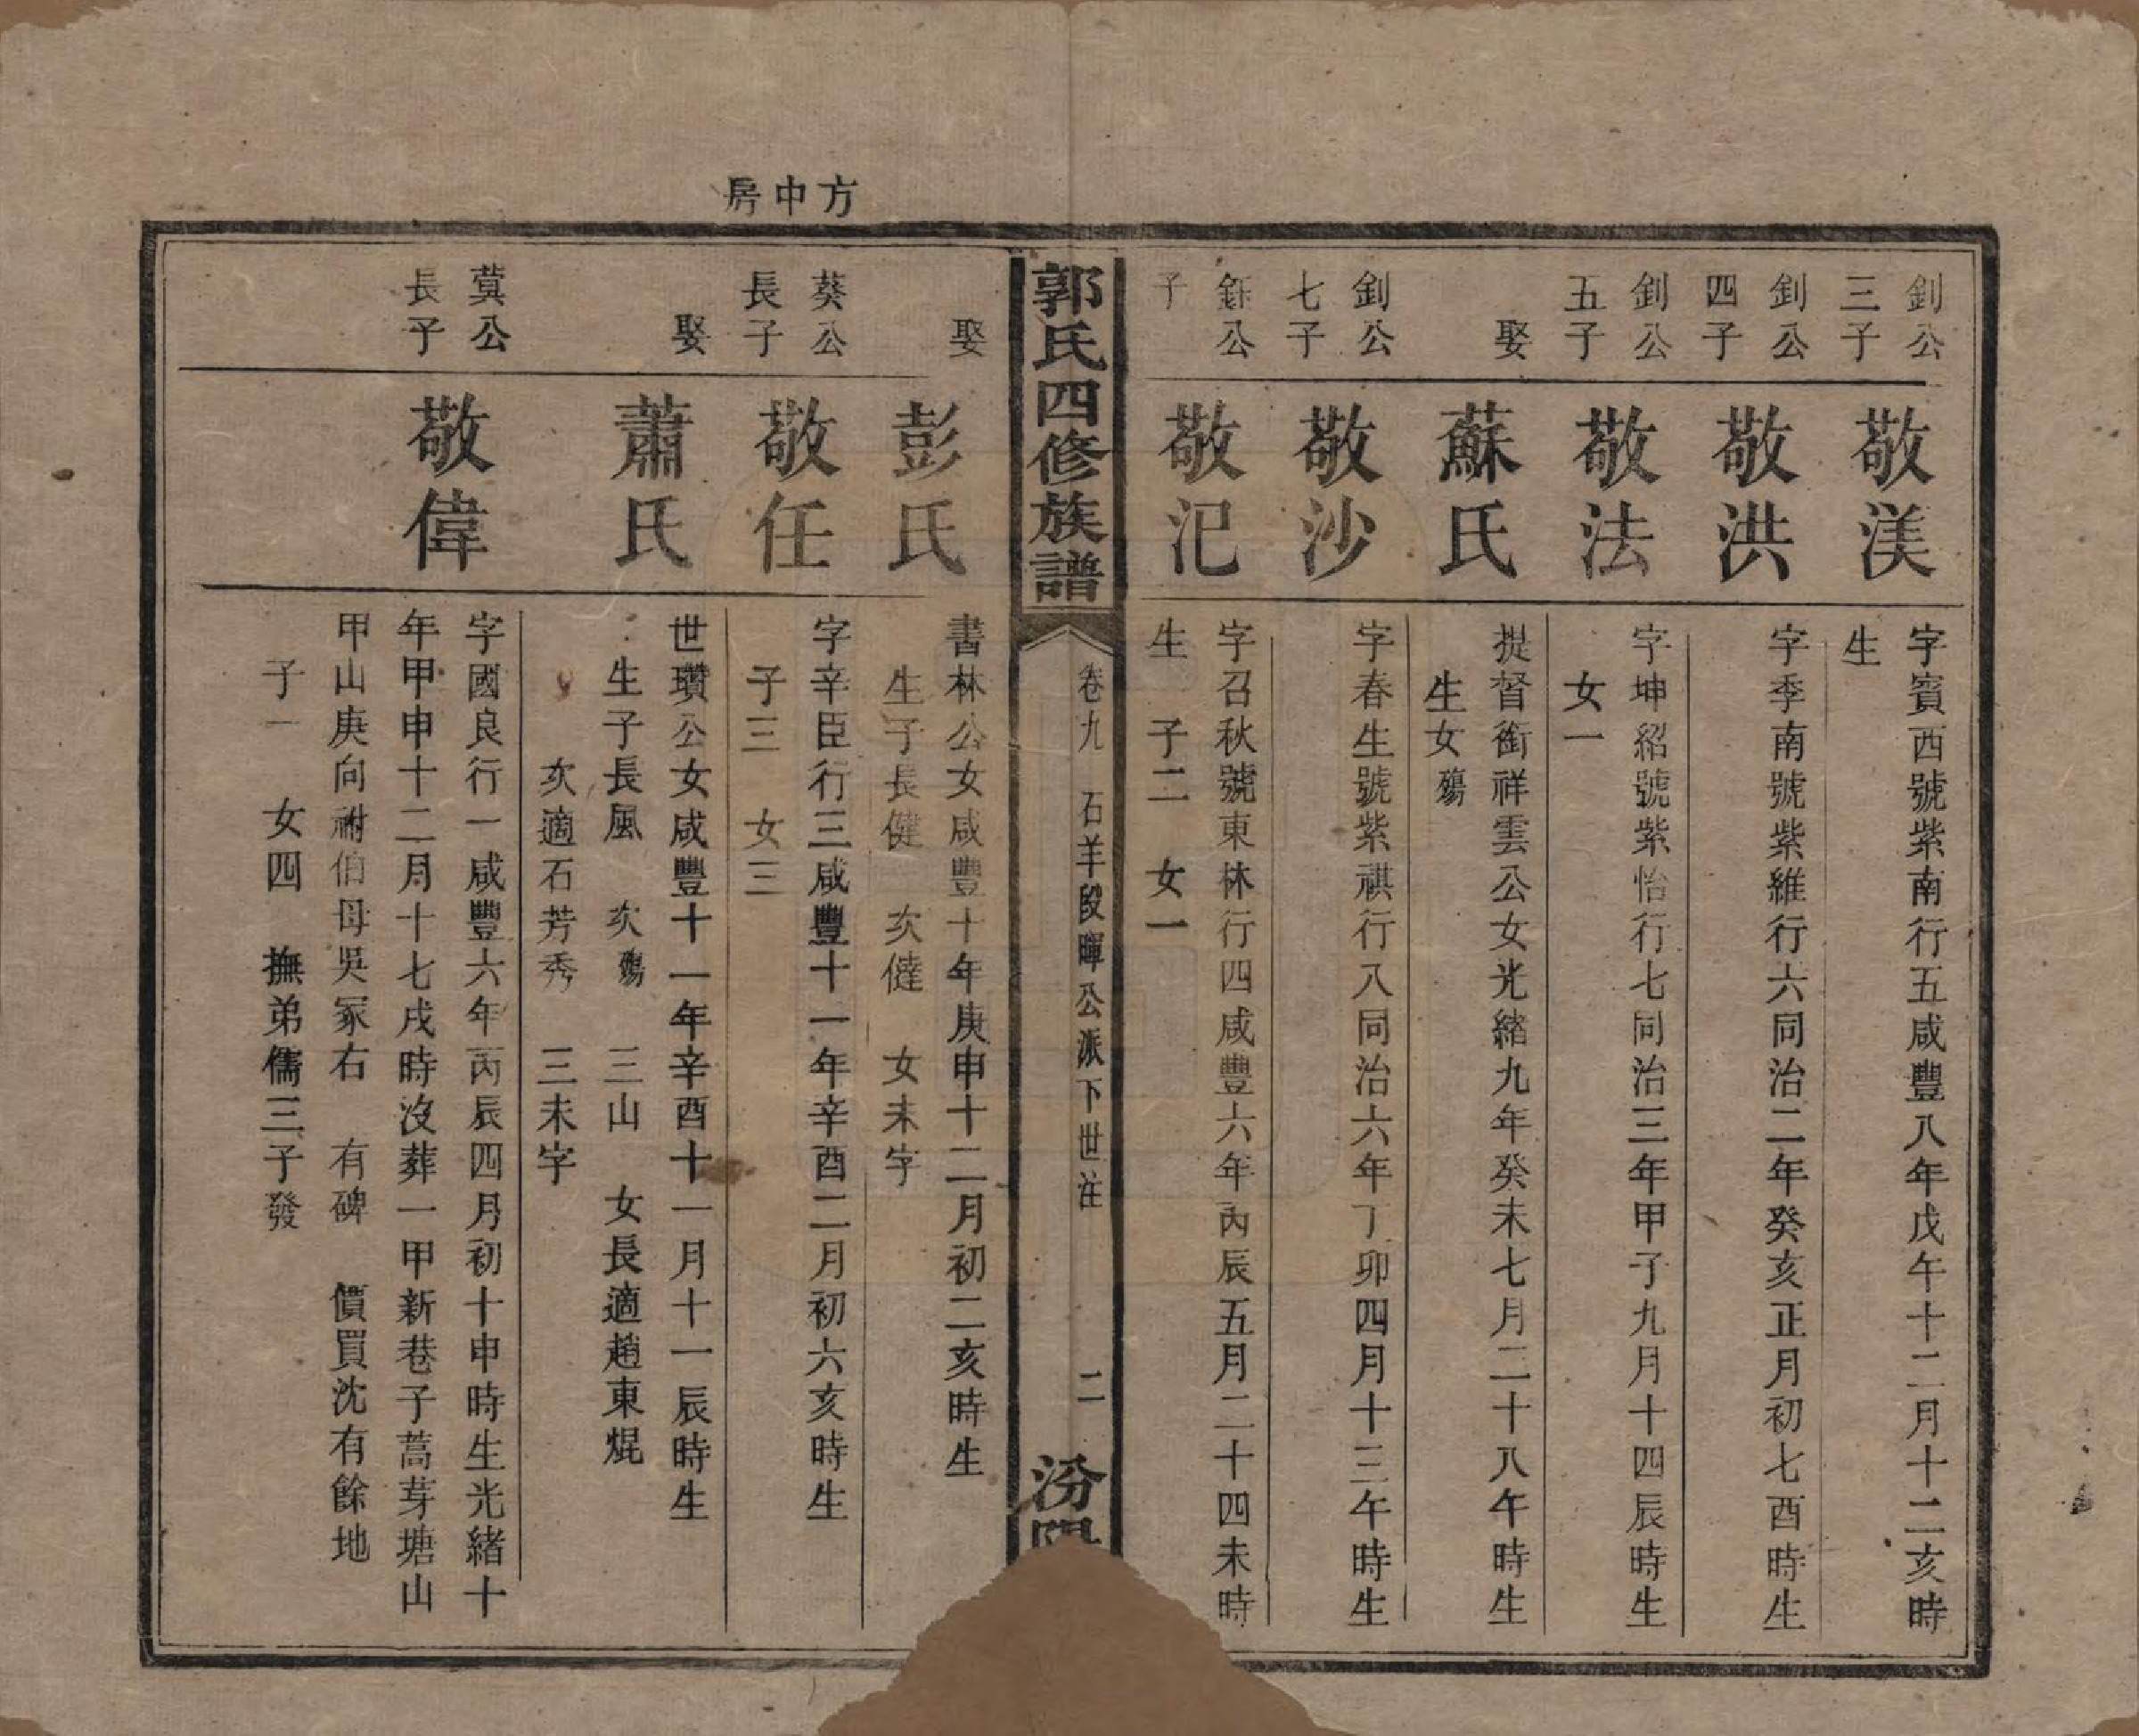 釗公
三子
敬渼
字賓西號紫南行五咸豐八年戊午十二月十二亥時
生
釗公
四子
敬洪
字季南號紫維行六同治二年癸亥正月初七酉時生
釗公
五子
敬法
字坤紹號紫怡行七同治三年甲子九月十四辰時生
女一
娶
蘇氏
提督銜祥雲公女光緒九年癸未七月二十八午時生
生女殤
釗公
七子
敬沙
字春生號紫祺行八同治六年丁卯四月十三午時生
公
子
敬汜
字召秋號東林行四咸豐六年丙辰五月二十四未時
生 子二 女一
郭氏四修族譜
卷九 石羊段暉公派下世注 二
汾陽
方中房
娶
彭氏
書林公女咸豐十年庚申十二月初二亥時生
生子長健 次僆 女未字
葵公
長子
敬任
字辛臣行三咸豐十一年辛酉二月初六亥時生
子三 女三
娶
蕭氏
世瓚公女咸豐十一年辛酉十一月十一辰時生
生子長風 次殤 三山 女長適趙東焜
次適石芳秀 三未字
蓂公
長子
敬偉
字國良行一咸豐六年丙辰四月初十申時生光緒十
年甲申十二月十七戌時沒葬一甲新巷子蒿芽塘山
甲山庚向祔伯母吳冢右 有碑 價買沈有餘地
子一 女四 撫弟儒三子發